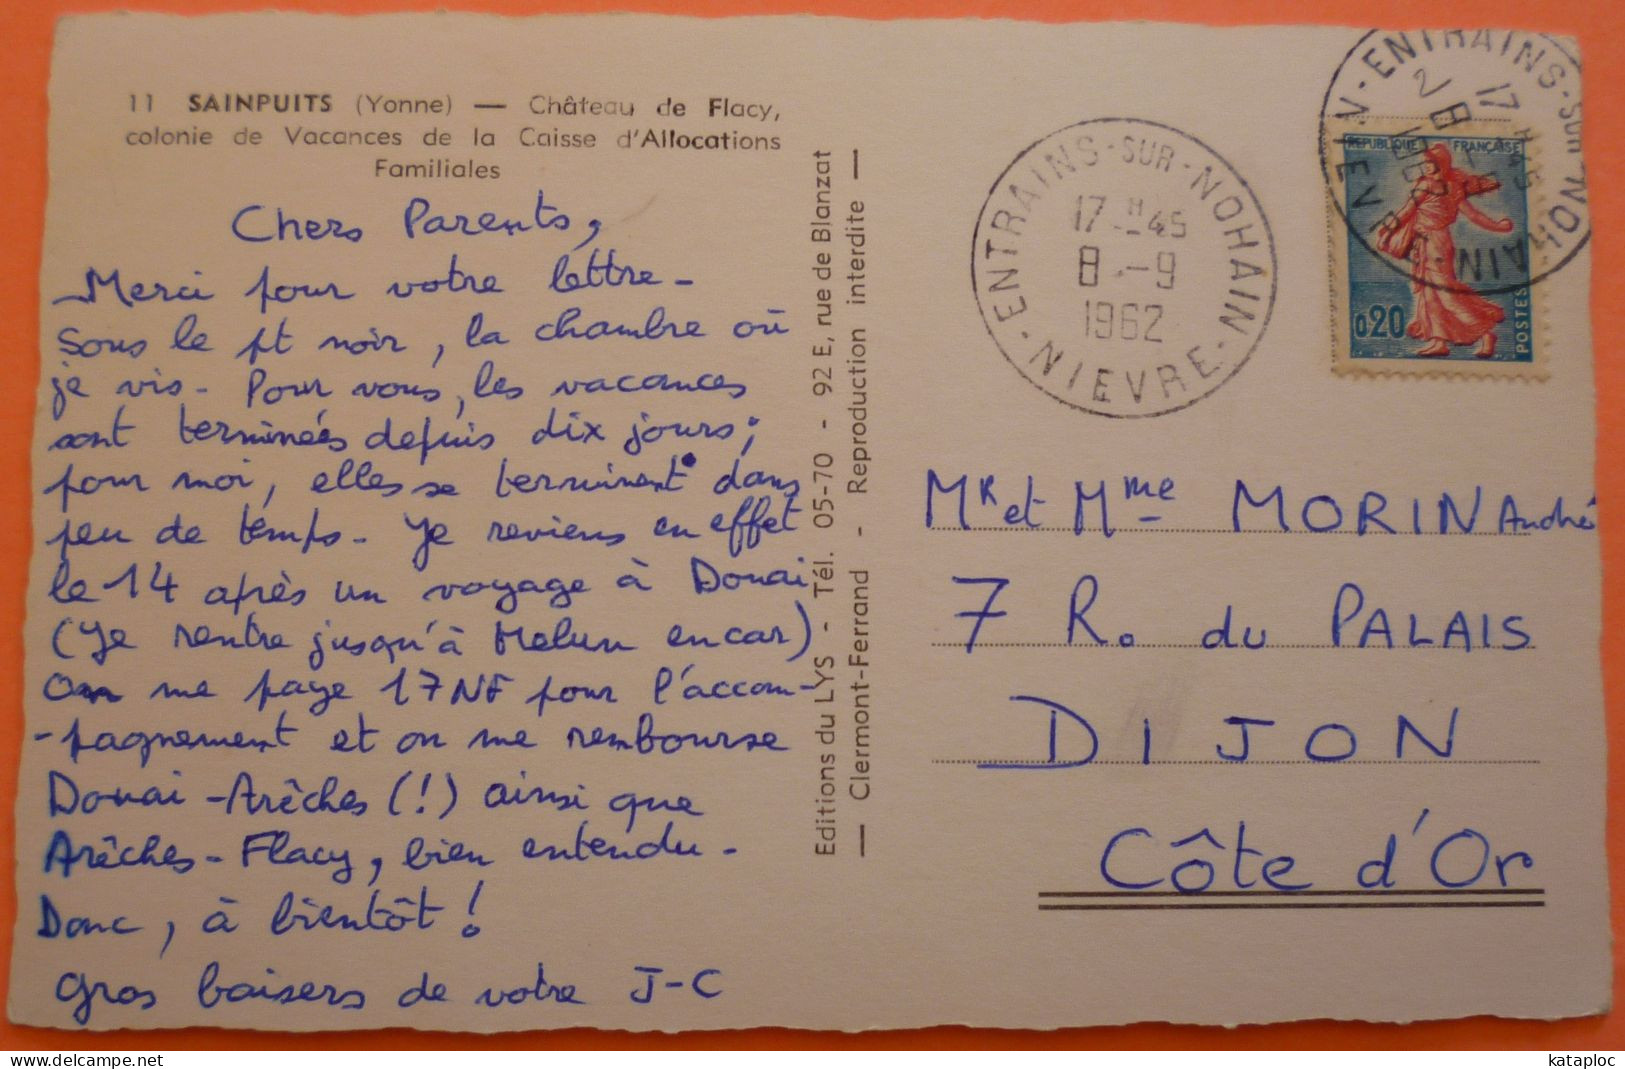 11 SAINPUITS (Yonne) — Château de Flacy,
colonie de Vacances de la Caisse d'Allocations
Familiales
Chers Parents,
Merci pour votre lettre -
Sous le pt noir, la chambre où
je vis - Pour vous, les vacances
sont terminées depuis dix jours;
pour moi, elles se terminent dans
peu de temps - Je reviens en effet
le 14 après un voyage à Douai
(Je rentre jusqu'à Melun en car)
On me paye 17 NF pour l'accom-
-pagnement et on me rembourse
Douai - Arêches (!) ainsi que
Arêches - Flacy, bien entendu -
Donc, à bientôt !
Gros baisers de votre J-C
Editions du LYS - Tél. 05-70 - 92 E, rue de Blanzat
— Clermont-Ferrand - Reproduction interdite —
ENTRAINS-SUR-NOHAIN
17 H 45
8 - 9
1962
- NIEVRE -
ENTRAINS-SUR-NOHAIN
17 H 45
8 - 9
1962
NIEVRE
REPUBLIQUE FRANÇAISE
0,20
POSTES
Mr et Mme MORIN André
7 R. du PALAIS
DIJON
Côte d'Or
www.delcampe.net
kataploc